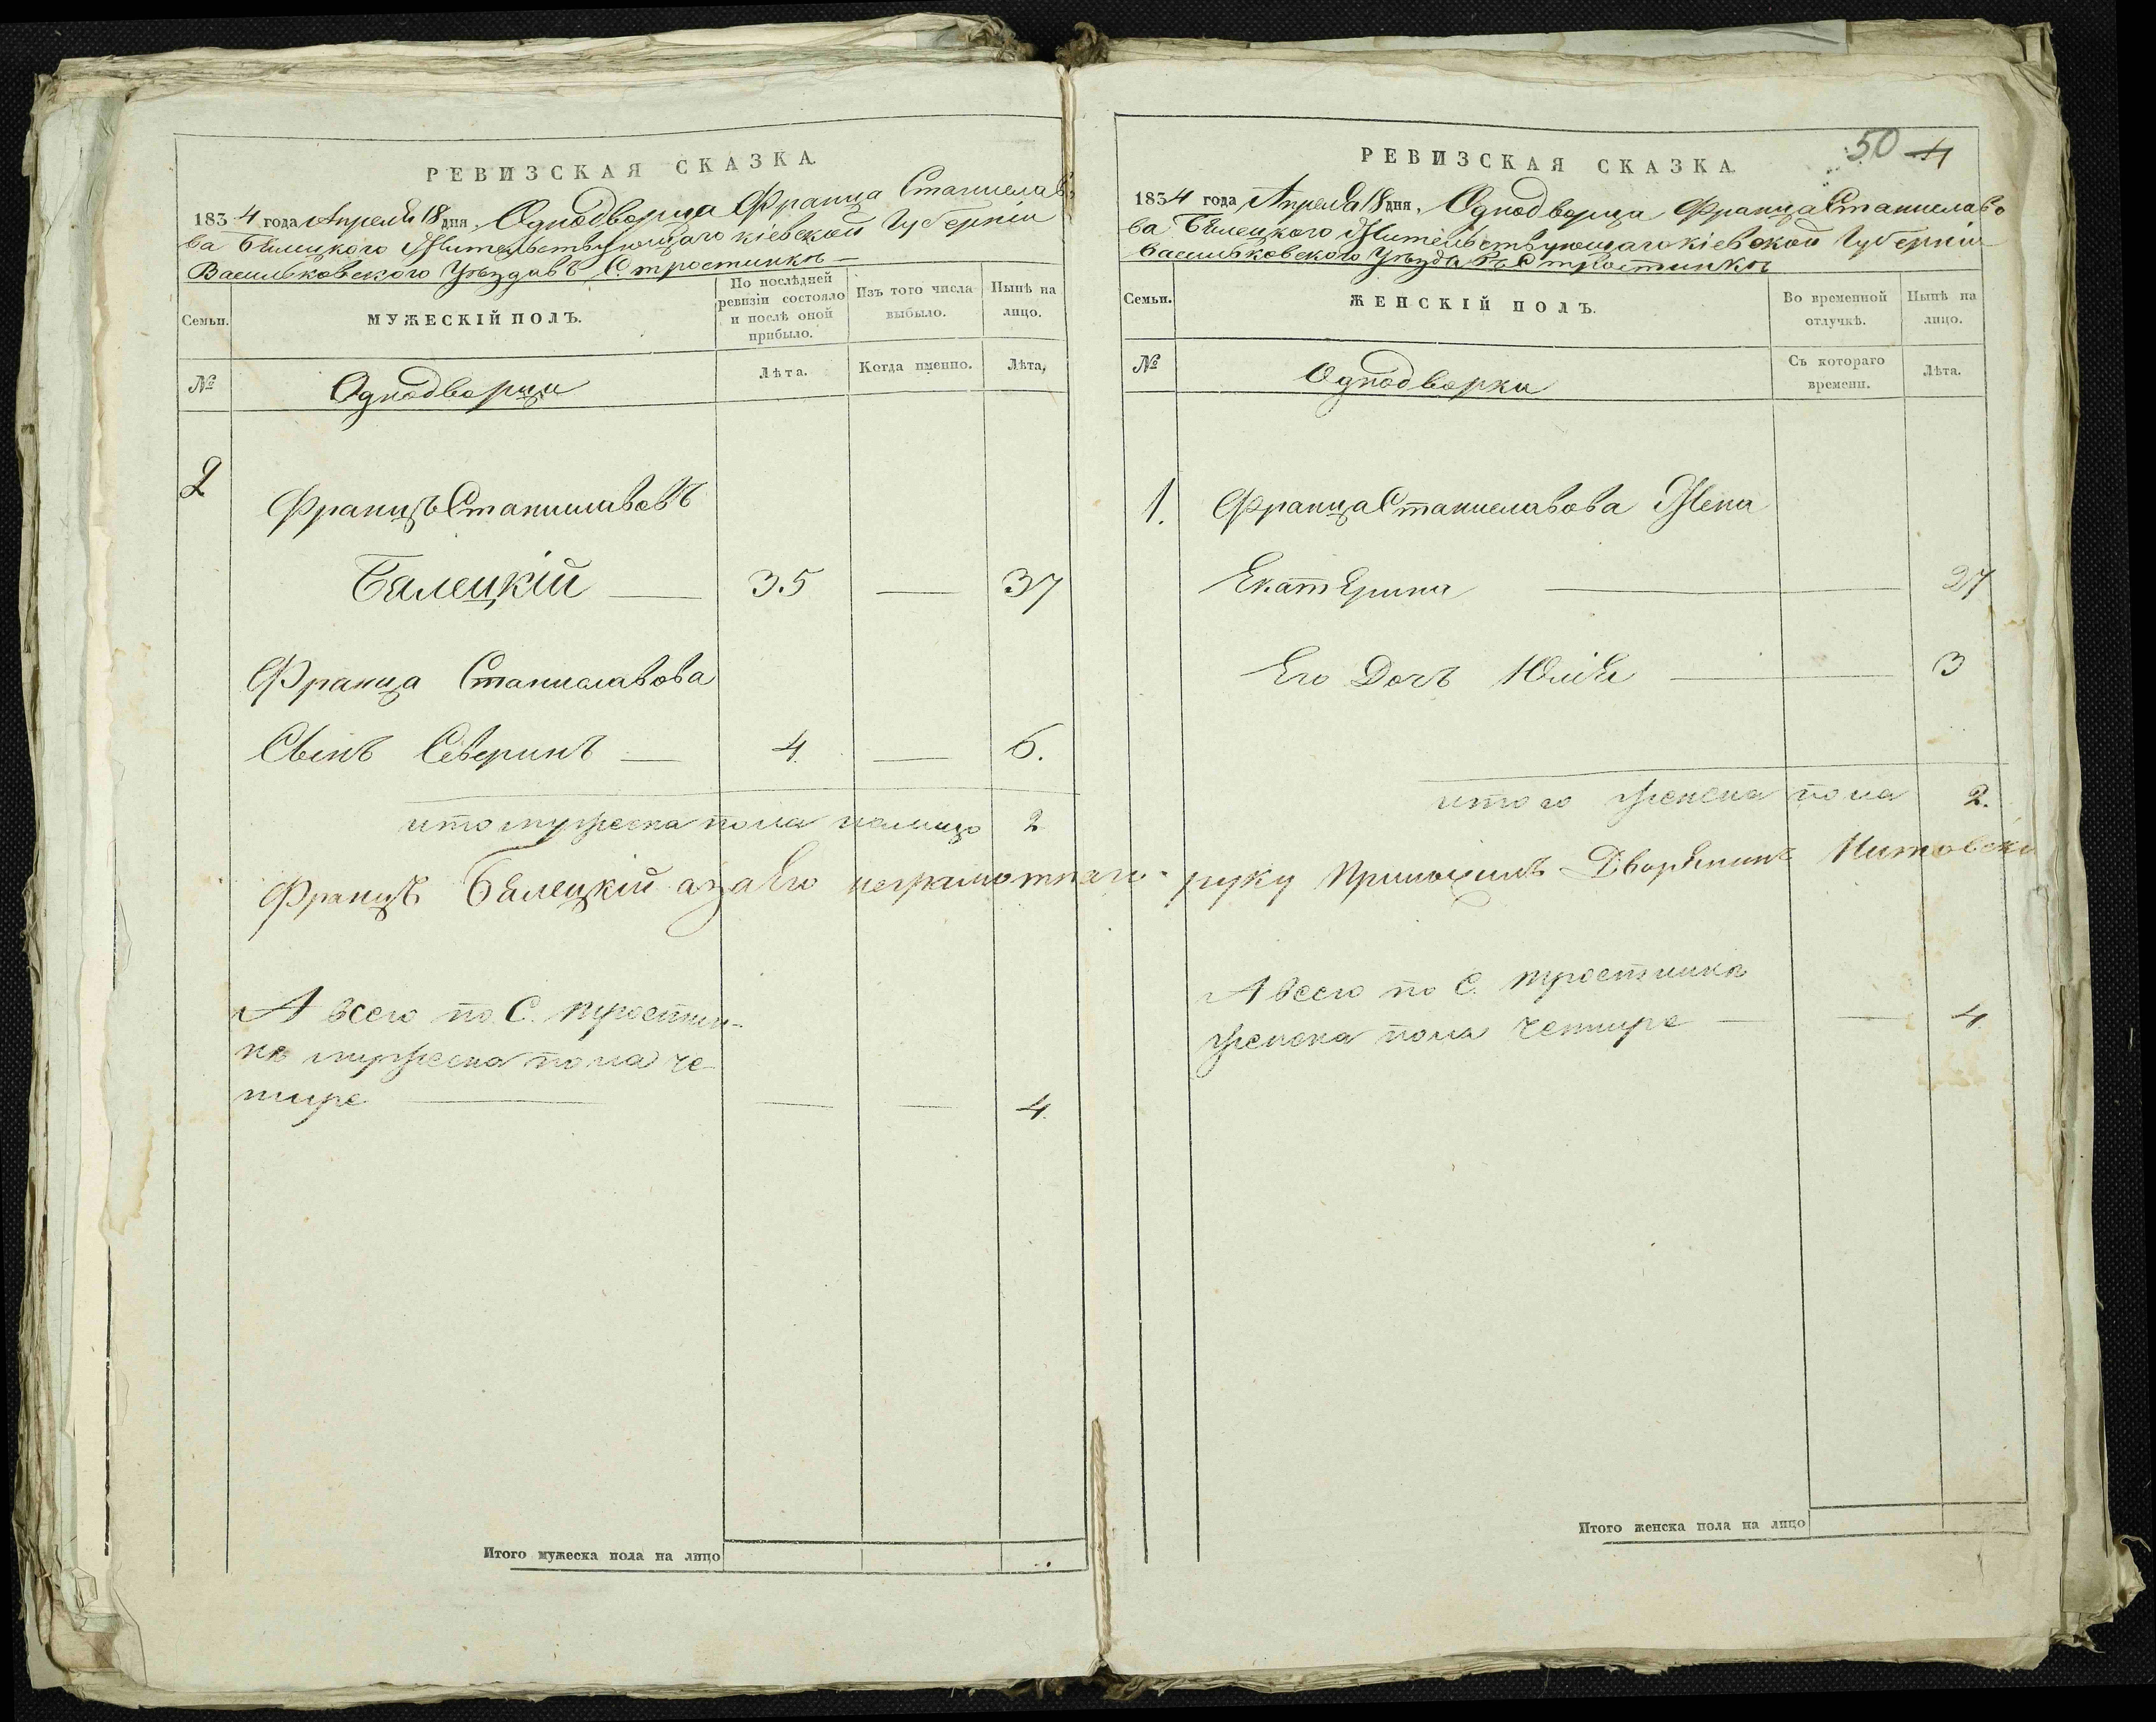 РЕВИЗСКАЯ СКАЗКА.
1834 года Апреля 18 дня. Однодворца Франца Станиславо
ва Бялецкого Жительствующаго кіевской Губерніи
Васильковского Уѣзда въ С. тростинкѣ
Семьи.
МУЖЕСКІЙ ПОЛЪ.
По послѣдней ревизіи состояло и послѣ оной прибыло.
Изъ того числа выбыло.
Нынѣ на лицо.
№
Однодворци
Лѣта.
Когда именно.
Лѣта,
2
Францъ Станиславовъ
Бялецкій — 35 — 37
Франца Станиславова
Сынъ Северинъ — 4. — 6.
итого мужеска пола налицо 2
Францъ Бялецкій а за его неграмотнаго
А всего по С. тростин-
кѣ мужеска пола че
тире — — — 4.
Итого мужеска пола на лицо
50 4
РЕВИЗСКАЯ СКАЗКА.
1834 года Апреля 18 дня. Однодворца Франца Станиславо
ва Бялецкого Жительствующаго кіевской Губерніи
Васильковского Уѣзда въ С тростинкѣ
Семьи.
ЖЕНСКІЙ ПОЛЪ.
Во временной отлучкѣ.
Нынѣ на лицо.
№
Однодворки
Съ котораго времени.
Лѣта.
1. Франца Станиславова Жена
Екатярина — 27
Его Дочъ Юлія — 3
итого женска пола 2.
руку приложилъ Дворянинъ
А всего по С. тростинкѣ
женска пола четире — — 4.
Итого женска пола на лицо